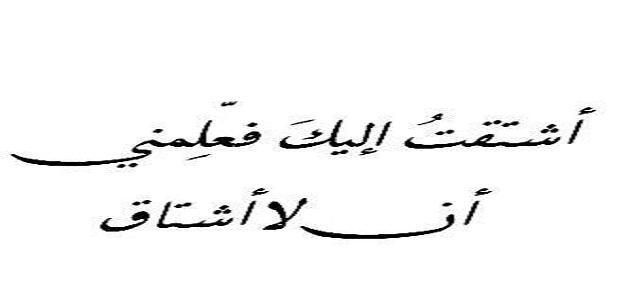 أشتقتُ إليكَ فعلِّمني
أن لا أشتاق